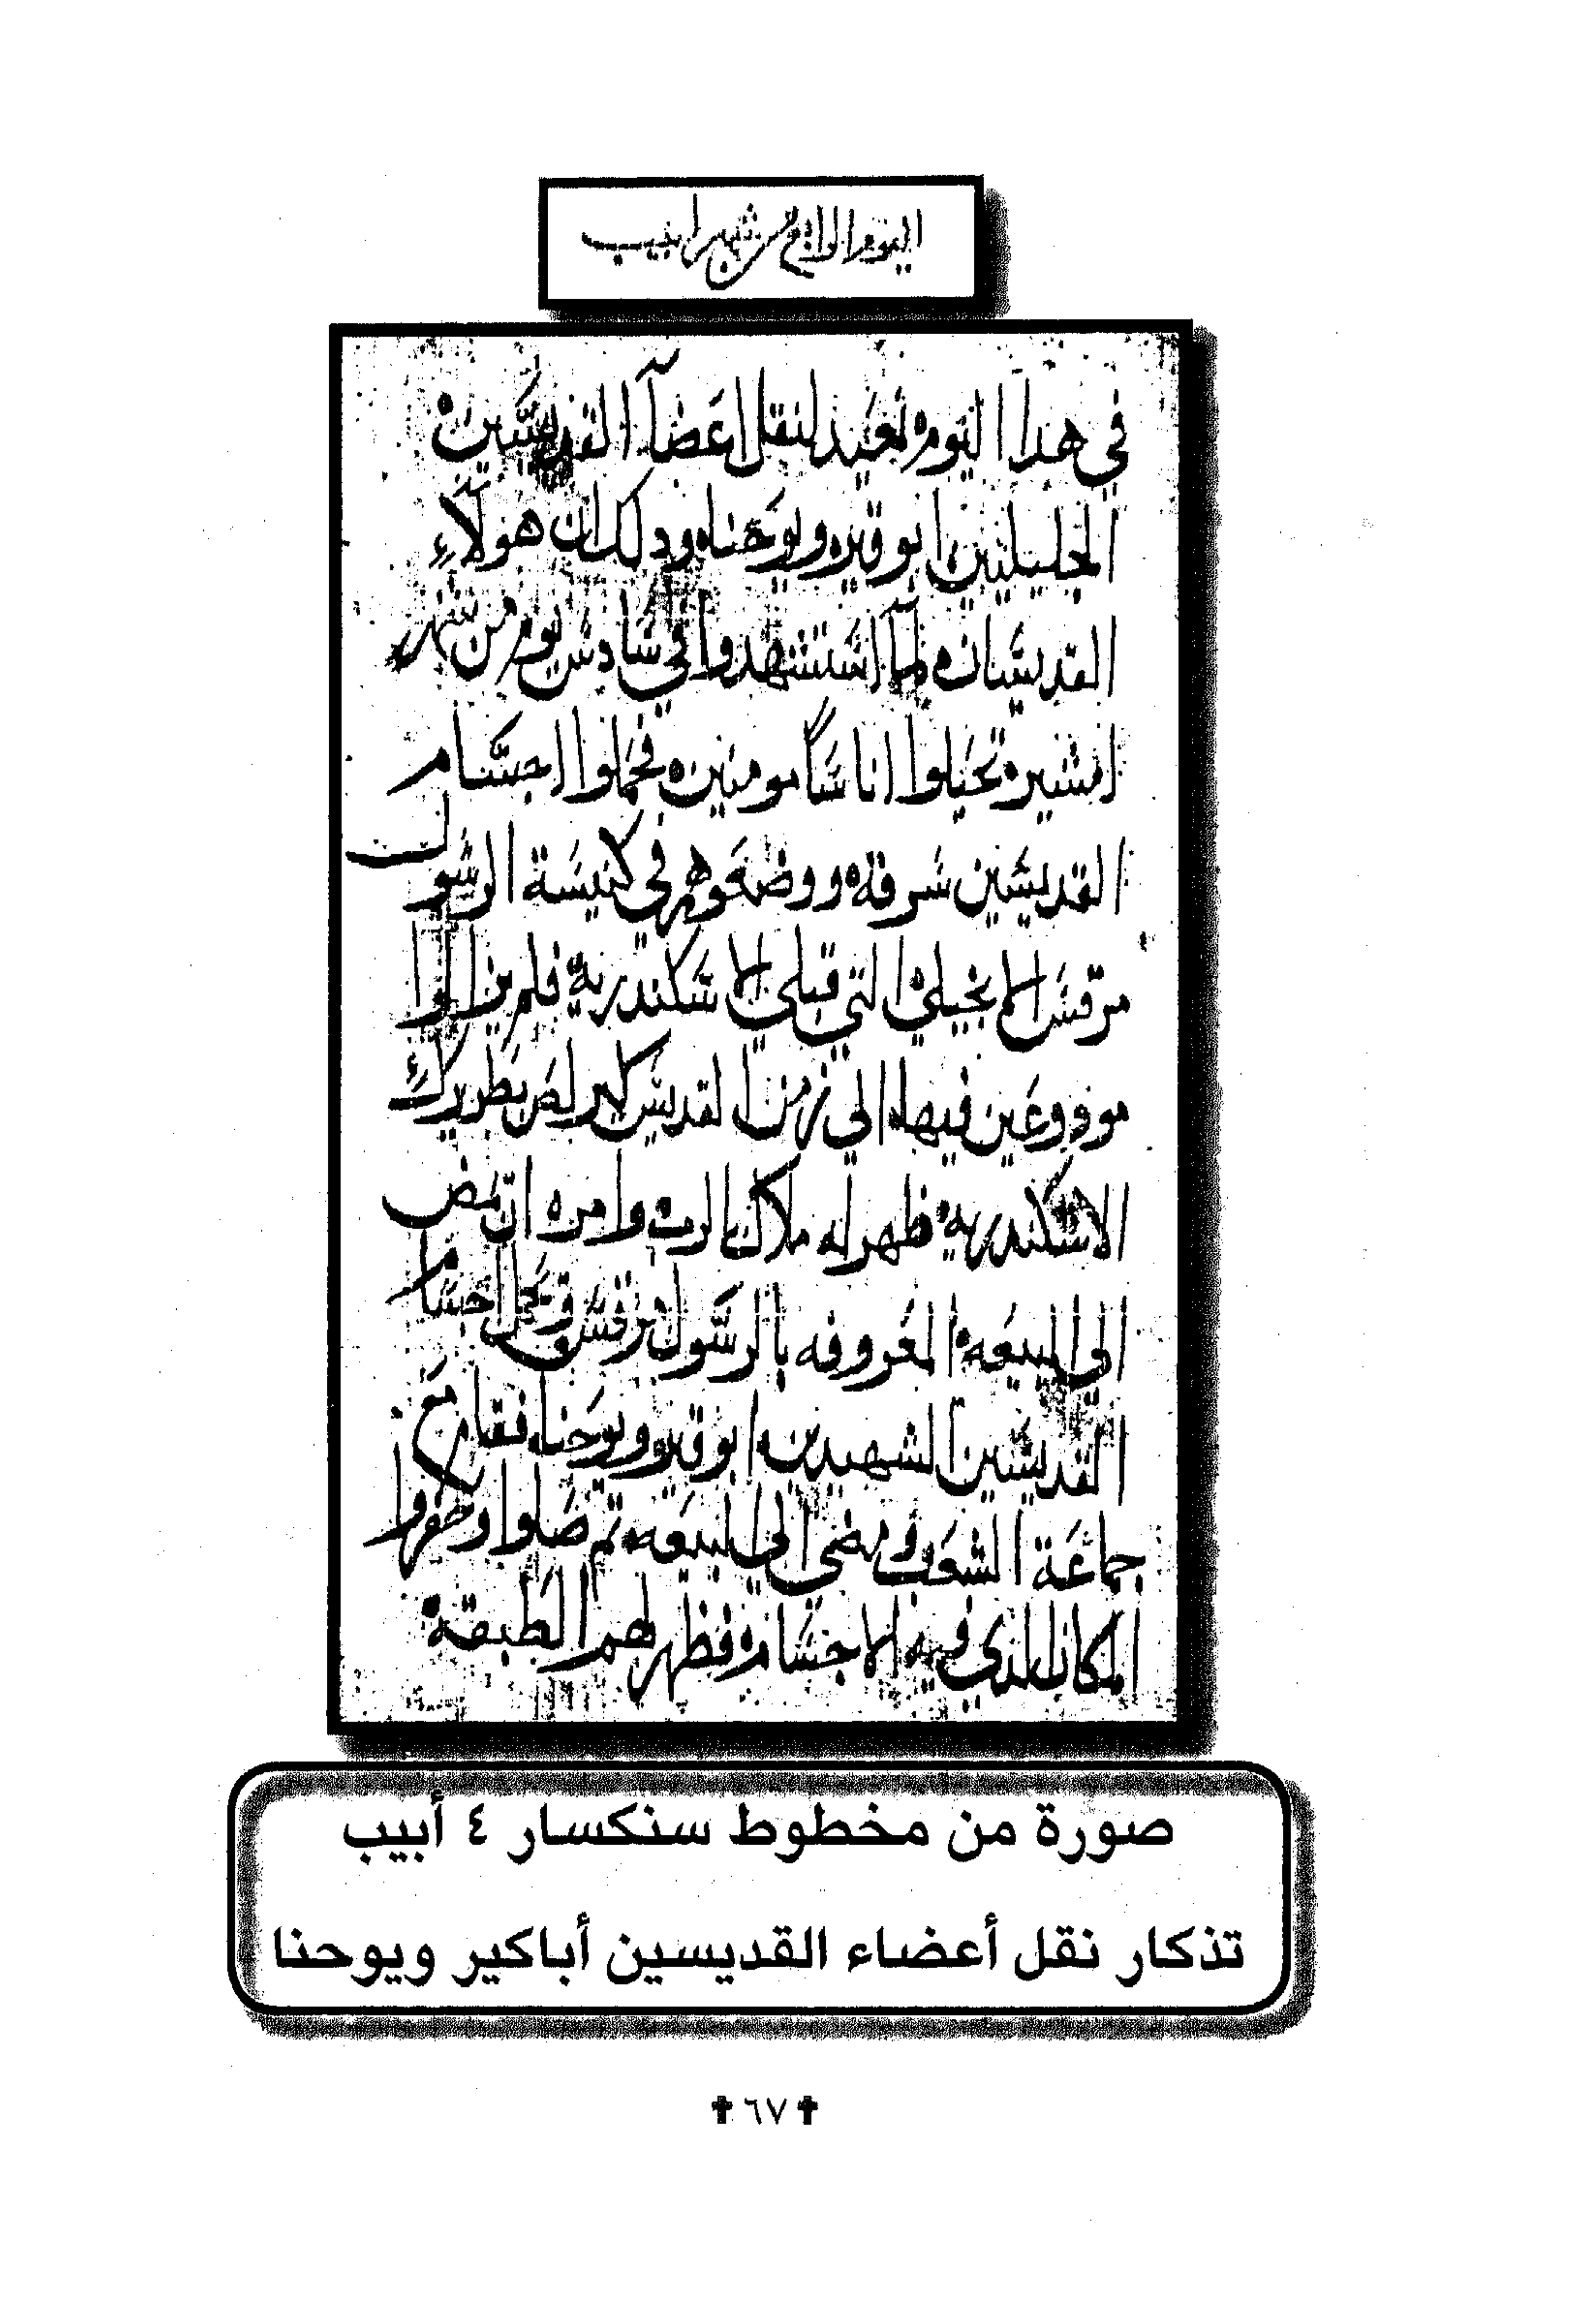 اليوم الرابع من شهر ابيب
في هدا اليوم نعيد لنقل اعضآ القديسين
الجليلين ابو قير ويوحنا ودلك ان هولاء
القديسان لمآ استشهدوا في سادس يوم من شهر
امشير تحيلوا اناسًا مومنين فحملوا اجسام
القديسين سرقة ووضعوهم في كنيسة الرسول
مرقس الانجيلي التي قبلي الاسكندرية فلم يزالوا
مودوعين فيها الي زمن القديس كيرلص بطريرك
الاسكندرية ظهر له ملاك الرب وامره ان يمض
الي البيعة المعروفه بالرسول مرقس ويحمل اجسام
القديسين الشهيدين ابو قير ويوحنا فقام مع
جماعة الشعب ومضي الي البيعه تم صلوا وحفروا
المكان الدي فيه الاجسام فظهر لهم الطبقة
صورة من مخطوط سنكسار ٤ أبيب
تذكار نقل أعضاء القديسين أباكير ويوحنا
✝ ٦٧ ✝